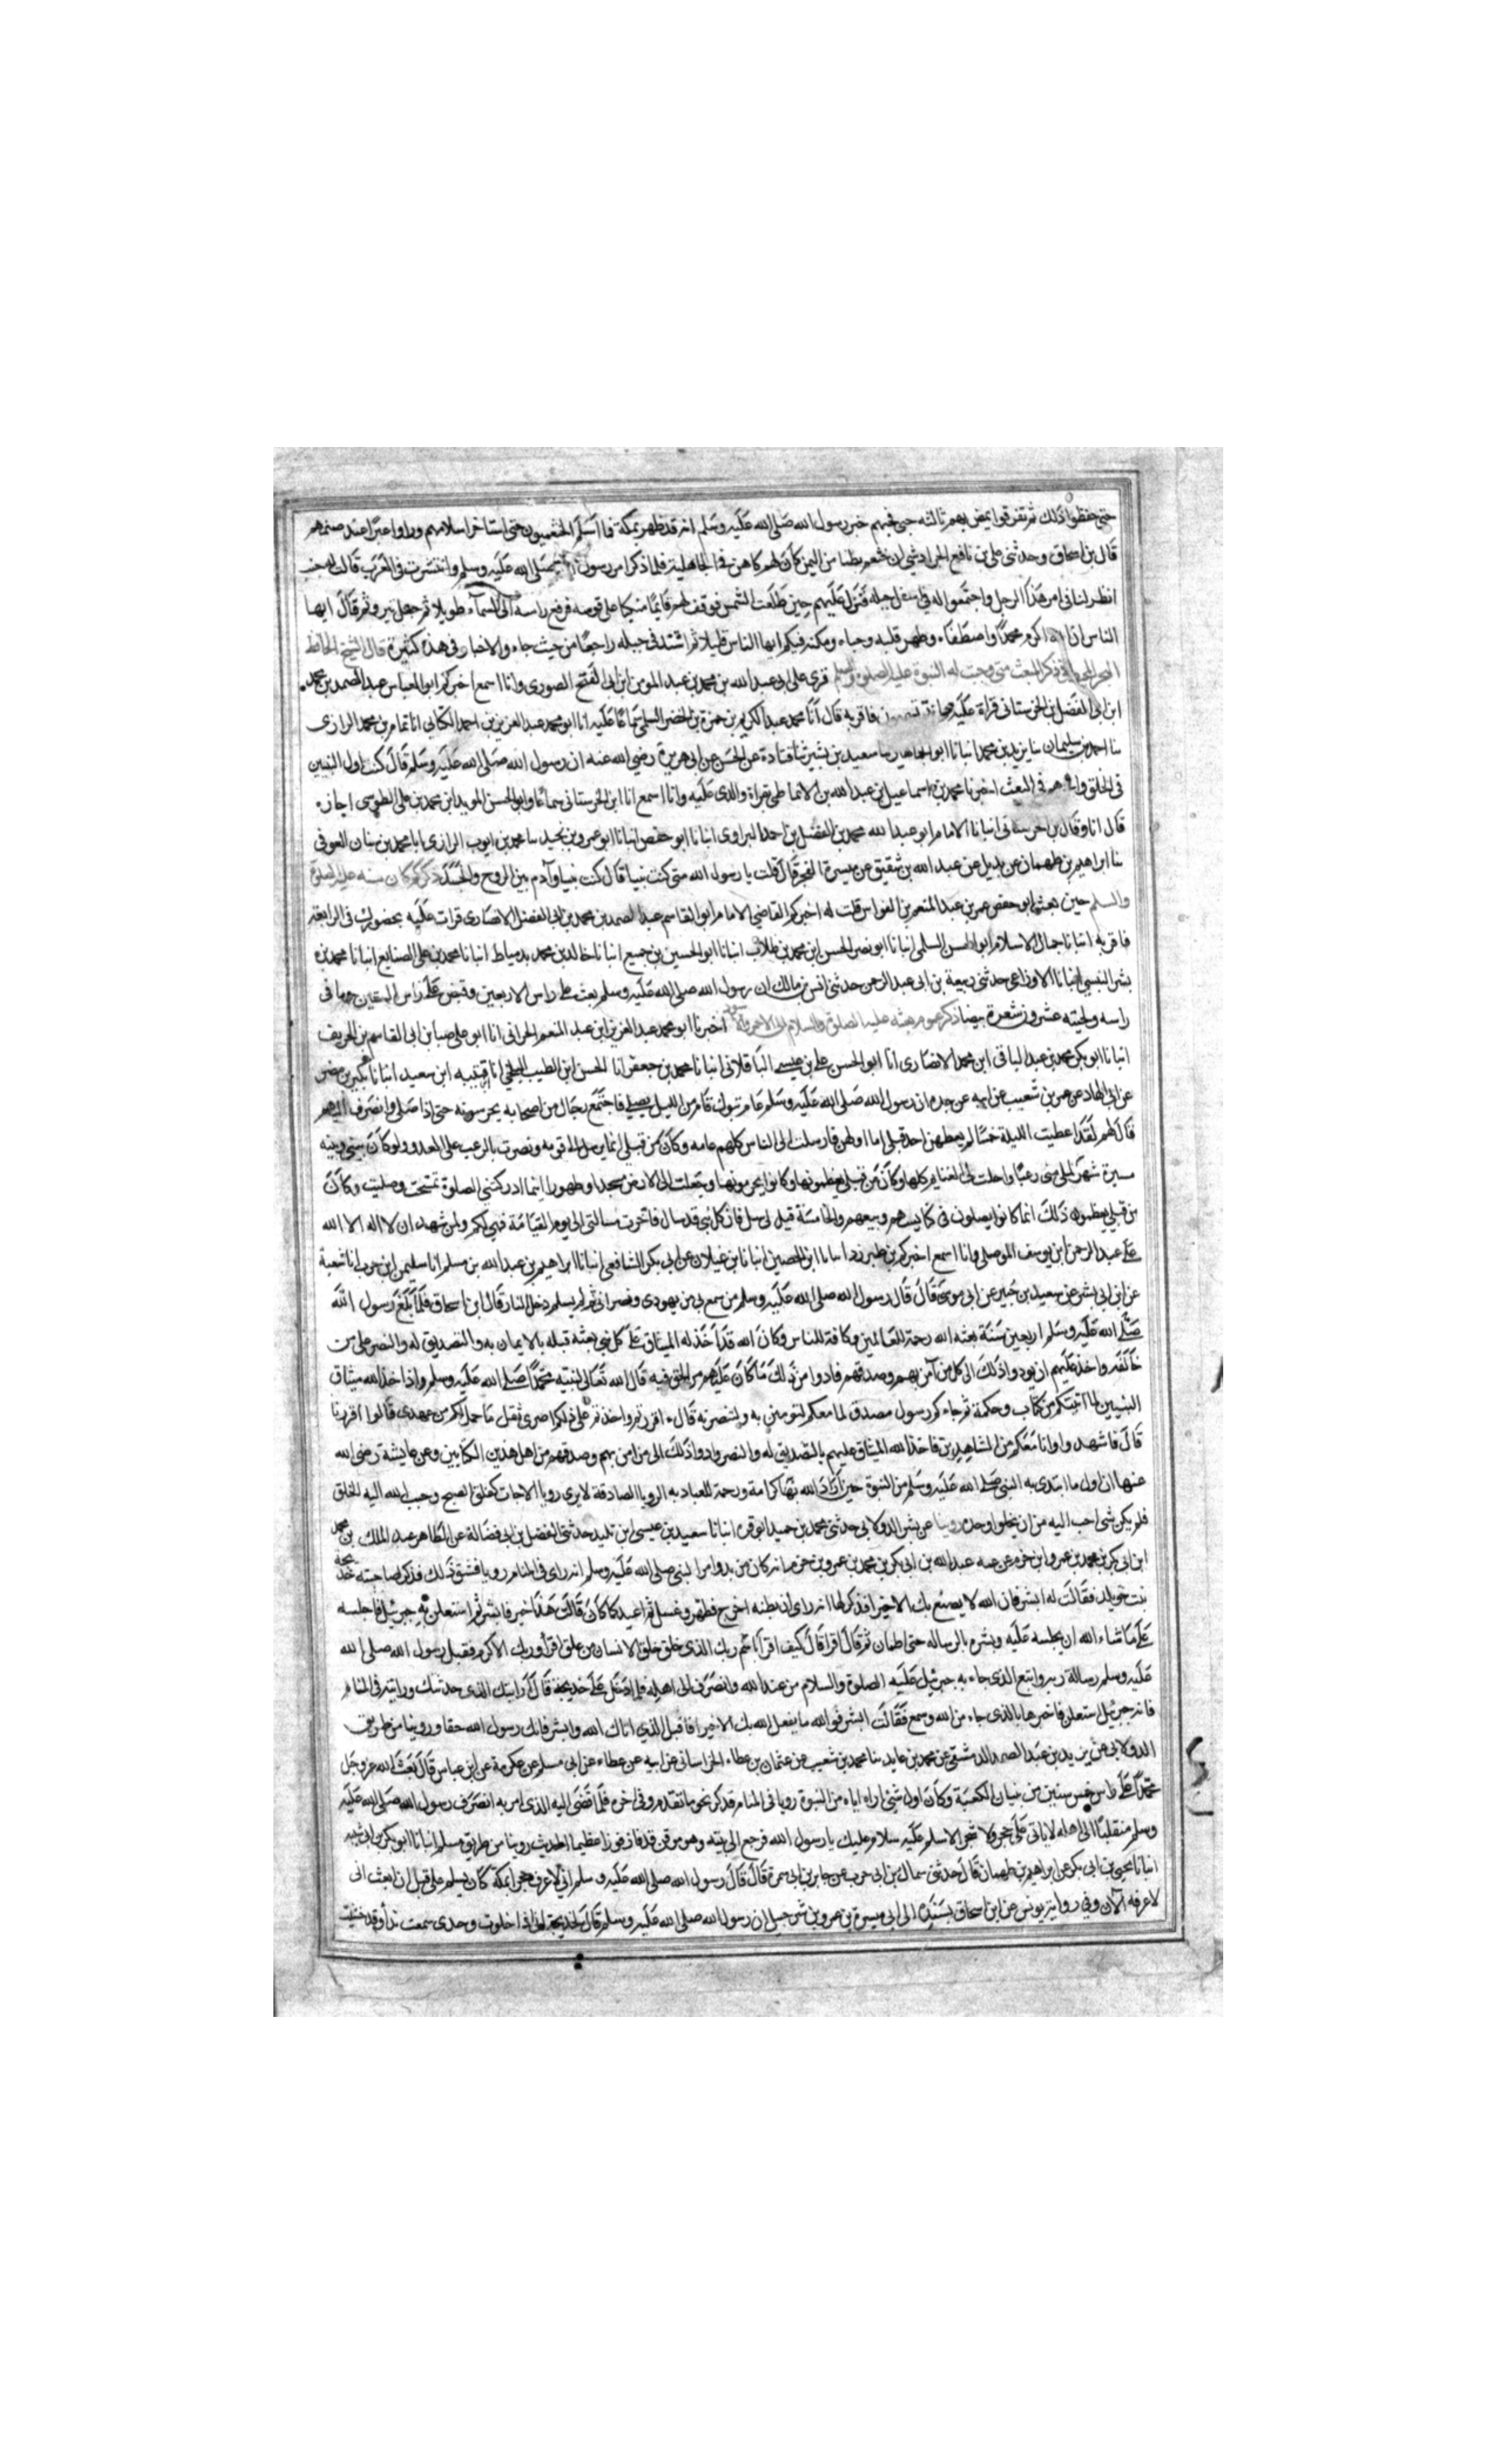 حتى حفظوا ذلك ثم تفرقوا فلم يمض بهم ثالثة حتى فجئهم خبر رسول الله صلى الله عليه وسلم انه قد ظهر بمكة فما اسلم الخثعميون حتى استاخر اسلامهم وراوا عبرا عند صنمهم
قال بن اسحاق وحدثنى على بن نافع الجرشي ان بطنا من اليمن كان لهم كاهن في الجاهلية فلما ذكر امر رسول الله صلى الله عليه وسلم وانتشرت في العرب قالت له جنب
انظر لنا فى امر هذا الرجل واجتمعوا له في اسفل جبله فنزل عليهم حين طلعت الشمس فوقف لهم قايما متكيا على قوسه فرفع راسه الى السماء طويلا ثم جعل ينزو ثم قال ايها
الناس ان الله اكرم محمدا واصطفاه وطهر قلبه وحباه ومكثه فيكم ايها الناس قليل ثم اشتد فى جبله راجعا من حيث جاء والاخبار فى هذا كثيرة قال الشيخ الحافظ
ذكر المبعث متى وجبت له النبوة عليه الصلوة والسلم قرى على ابى عبد الله بن محمد بن عبد المومن بن ابى الفتح الصورى وانا اسمع اخبركم ابو العباس عبد الصمد بن محمد
ابن ابى الفضل بن الحرستانى قراة عليه فاقر به قال انا محمد عبد الكريم بن حمزة بن الخضر السلمى سماعا عليه انا ابو محمد عبد العزيز بن احمد الكتانى انا تمام بن محمد الرازى
نا احمد بن سليمان نا يزيد بن محمد انبانا ابو الجماهير نا سعيد بن بشير ثنا قتادة عن الحسن عن ابى هريرة رضي الله عنه ان رسول الله صلى الله عليه وسلم قال كنت اول النبيين
فى الخلق واخرهم فى البعث اخبرنا محمد بن اسماعيل بن عبد الله بن الانماطى بقراة والدى عليه وانا اسمع انا ابن الحرستانى سماعا وابو الحسن المويد ابن محمد بن على الطوسى اجازه
قال انا وقال بن الحرستانى انبانا الامام ابو عبد الله محمد بن الفضل بن احمد الفراوى انبانا ابو حفص انبانا ابو عمرو بن نجيد نا محمد بن ايوب الرازى انا محمد بن سنان العوفى
نا ابراهيم بن طهمان عن بديل عن عبد الله بن شقيق عن ميسرة الفجر قال قلت يا رسول الله متى كنت نبيا قال كنت نبيا وآدم بين الروح والجسد ذكر كم كان سنه عليه الصلوة
والسلم حين بعث ابو حفص عمر بن عبد المنعم بن القواس قلت له اخبركم القاضي الامام ابو القاسم عبد الصمد بن محمد بن ابى الفضل الانصارى قراة عليه بحضورك فى الرابعة
فاقر به انبانا جمال الاسلام ابو الحسن السلمى انبانا ابو نصر الحسن ابن محمد بن طلاب انبانا ابو الحسين بن جميع انبانا خالد بن محمد بدمياط انبانا محمد بن على الصنايع انبانا محمد بن
بشر التنيسى انبانا الاوزاعى حدثنى ربيعة بن ابى عبد الرحمن حدثنى انس بن مالك ان رسول الله صلى الله عليه وسلم بعث على راس الاربعين وقبض على راس الستين وما فى
راسه ولحيته عشرون شعرة بيضا ذكر عموم بعثه عليه الصلوة والسلام الى الاحمر والاسود اخبرنا ابو محمد عبد العزيز ابن عبد المنعم الحرانى انا ابو على ضيا بن ابى القاسم بن الخريف
انبانا ابو بكر محمد بن عبد الباقى ابن محمد الانصارى انا ابو الحسن على بن عيسى الباقلانى انبانا محمد بن جعفر انا الحسن ابن الطيب البلخى انا قتيبه ابن سعيد انبانا بكر بن مضر
عن ابى الهاد عن عمر بن شعيب عن ابيه عن جده ان رسول الله صلى الله عليه وسلم عام تبوك قام من الليل يصلى فاجتمع رجال من اصحابه يحرسونه حتى اذا صلى وانصرف اليهم
قال لهم لقد اعطيت الليلة خمسا لم يعطهن احد قبلى اما اولهن فارسلت الى الناس كلهم عامه وكان من قبلى انما يرسل الى قومه ونصرت بالرعب على العدو ولو كان بينى وبينه
مسيرة شهر لملى منى رعبا واحلت لى الغنايم كلها وكان من قبلى يعظمونها وكانوا يحرمونها وجعلت لى الارض مسجدا وطهورا اينما ادركتنى الصلوة تمسحت وصليت وكان
من قبلى يعظمون ذلك انما كانوا يصلون فى كنايسهم وبيعهم والخامسة قيل لى سل فان كل نبى قد سال فاخرت مسالتى الى يوم القيامة فهي لكم ولمن شهد ان لا اله الا الله
على عبد الرحمن ابن يوسف الموصلى وانا اسمع اخبركم بن طبرزد انبانا ابن الحصين انبانا ابن غيلان عن ابى بكر الشافعى انبانا ابراهيم بن عبد الله بن مسلم انا سليمن ابن حرب انا شعبة
عن ابى بشر عن سعيد بن جبير عن ابى موسى قال قال رسول الله صلى الله عليه وسلم من سمع بى من يهودى ونصرانى ثم لم يسلم دخل النار قال ابن اسحاق فلما بلغ رسول الله
صلى الله عليه وسلم اربعين سنة بعثه الله رحمة للعالمين وكافة للناس وكان الله قد اخذ له الميثاق على كل نبى بعثه قبله بالايمان به والتصديق له والنصر على من
خالفه واخذ عليهم ان يودوا ذلك الى كل من آمن بهم وصدقهم فادوا من ذلك ما كان عليهم من الحق فيه قال الله تعالى لنبيه محمدا صلى الله عليه وسلم واذ اخذ الله ميثاق
النبيين لما آتيتكم من كتاب وحكمة ثم جاءكم رسول مصدق لما معكم لتومنن به ولتنصرنه قال ء اقررتم واخذتم على ذلكم اصرى ثقل ما حملتكم من عهدى قالوا اقررنا
قال فاشهدوا وانا معكم من الشاهدين فاخذ الله الميثاق عليهم بالتصديق له والنصر وادوا ذلك الى من امن بهم وصدقهم من اهل هذين الكتابين وعن عايشة رضى الله
عنها ان اول ما ابتدى به النبى صلى الله عليه وسلم من النبوة حين اراد الله بها كرامة ورحمة للعباد به الرويا الصادقة لا يرى رويا الا جات كفلق الصبح وحبب الله اليه الخلق
فلم يكن شى احب اليه من ان يخلوا وحده روينا عن بشر الدولابى حدثنى محمد بن حميد ابو قره انبانا سعيد بن عيسى ابن تليد حدثنى الفضل بن ابى فضالة عن الطاهر عبد الملك بن محمد
ابن ابى بكر بن محمد بن عمرو ابن حزم عن عمه عبد الله بن ابى بكر بن محمد بن عمرو بن حزم انه كان من بدو امر النبى صلى الله عليه وسلم انه راى فى المنام رويا فشق ذلك فذكر لصاحبته خديجة
بنت خويلد فقالت له ابشر فان الله لا يصنع بك الا خيرا فذكر لها انه راى ان بطنه اخرج فطهر وغسل ثم اعيد كما كان قالت هذا خير فابشر ثم استعلن به جبرئيل فاجلسه
على ما شاء الله ان يجلسه عليه وبشره بالرساله حتى اطمان ثم قال اقرا قال كيف اقرا باسم ربك الذى خلق خلق الانسان من علق اقرا وربك الاكرم فقبل رسول الله صلى الله
عليه وسلم رسالة ربه واتبع الذى جاء به جبرئيل عليه الصلوة والسلام من عند الله وانصرف الى اهله فلما دخل على خديجة قال ارايتك الذى حدثتك ورايته فى المنام
فانه جبرئيل استعلن فاخبرها بالذى جاء من الله وسمع فقالت ابشر فوالله ما يفعل الله بك الا خيرا فاقبل الذى اتاك الله وابشر فانك رسول الله حقا وروينا من طريق
الدولابى عن يزيد بن عبد الصمد الدمشقى عن محمد بن عايد نا محمد بن شعيب عن عثمان بن عطاء الخراسانى عن ابيه عن عطاء عن ابى مسلم عن عكرمة عن ابن عباس قال بعث الله عز وجل
محمدا على راس خمس سنين من بنيان الكعبة وكان اول شئ اراه اياه من النبوة رويا فى المنام فذكر نحو ما تقدم وفى اخره فلما قضى اليه الذى امر به انصرف رسول الله صلى الله عليه
وسلم منقلبا الى اهله لا ياتى على حجر ولا شجر الا سلم عليه سلام عليك يا رسول الله فرجع الى بيته وهو موقن قد فاز فوزا عظيما الحديث روينا من طريق مسلم انبانا ابو بكر بن ابى شيبه
انبانا يحيى بن ابى بكر عن ابراهيم بن طهمان قال حدثنى سماك بن ابى حرب عن جابر بن ابى سمرة قال قال رسول الله صلى الله عليه وسلم انى لاعرف حجرا بمكة كان يسلم على قبل ان ابعث انى
لاعرفه الآن وفى رواية يونس عن ابن اسحاق بسنده الى ابى ميسرة بن عمرو بن شرحبيل ان رسول الله صلى الله عليه وسلم قال لخديجة انى اذا خلوت وحدى سمعت ندا وقد خشيت